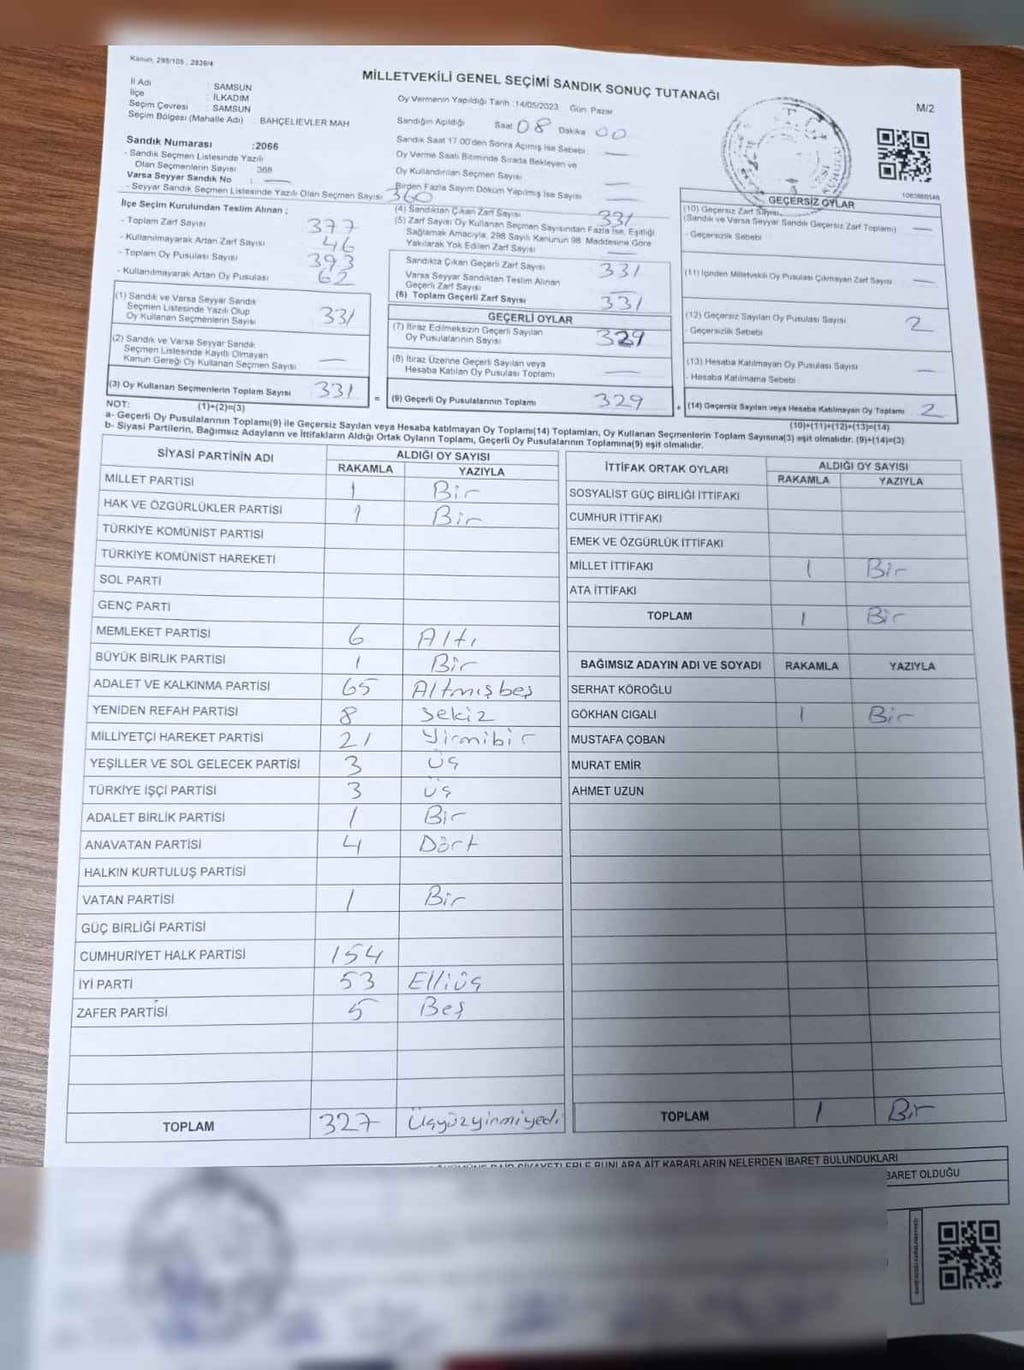 Kanun: 298/105 , 2839/4
MİLLETVEKİLİ GENEL SEÇİMİ SANDIK SONUÇ TUTANAĞI
M/2
İl Adı : SAMSUN
İlçe : İLKADIM
Seçim Çevresi : SAMSUN
Seçim Bölgesi (Mahalle Adı) : BAHÇELİEVLER MAH
Sandık Numarası :2066
- Sandık Seçmen Listesinde Yazılı
Olan Seçmenlerin Sayısı : 368
Varsa Seyyar Sandık No : —
- Seyyar Sandık Seçmen Listesinde Yazılı Olan Seçmen Sayısı : 360
Oy Vermenin Yapıldığı Tarih :14/05/2023 Gün: Pazar
Sandığın Açıldığı Saat 08 Dakika 00
Sandık Saat 17.00'den Sonra Açılmış İse Sebebi : —
Oy Verme Saati Bitiminde Sırada Bekleyen ve
Oy Kullandırılan Seçmen Sayısı —
Birden Fazla Sayım Döküm Yapılmış İse Sayısı —
1083888546
İlçe Seçim Kurulundan Teslim Alınan ;
- Toplam Zarf Sayısı 377
- Kullanılmayarak Artan Zarf Sayısı 46
- Toplam Oy Pusulası Sayısı 393
- Kullanılmayarak Artan Oy Pusulası 62
(1) Sandık ve Varsa Seyyar Sandık
Seçmen Listesinde Yazılı Olup
Oy Kullanan Seçmenlerin Sayısı 331
(2) Sandık ve Varsa Seyyar Sandık
Seçmen Listesinde Kayıtlı Olmayan
Kanun Gereği Oy Kullanan Seçmen Sayısı —
(3) Oy Kullanan Seçmenlerin Toplam Sayısı 331
(4) Sandıktan Çıkan Zarf Sayısı 331
(5) Zarf Sayısı Oy Kullanan Seçmen Sayısından Fazla İse, Eşitliği
Sağlamak Amacıyla, 298 Sayılı Kanunun 98. Maddesine Göre
Yakılarak Yok Edilen Zarf Sayısı —
Sandıkta Çıkan Geçerli Zarf Sayısı 331
Varsa Seyyar Sandıktan Teslim Alınan
Geçerli Zarf Sayısı —
(6) Toplam Geçerli Zarf Sayısı 331
GEÇERLİ OYLAR
(7) İtiraz Edilmeksizin Geçerli Sayılan
Oy Pusulalarının Sayısı 329
(8) İtiraz Üzerine Geçerli Sayılan veya
Hesaba Katılan Oy Pusulası Toplamı —
= (9) Geçerli Oy Pusulalarının Toplamı 329
GEÇERSİZ OYLAR
(10) Geçersiz Zarf Sayısı
(Sandık ve Varsa Seyyar Sandık Geçersiz Zarf Toplamı) —
- Geçersizlik Sebebi
(11) İçinden Milletvekili Oy Pusulası Çıkmayan Zarf Sayısı —
(12) Geçersiz Sayılan Oy Pusulası Sayısı 2
- Geçersizlik Sebebi
(13) Hesaba Katılmayan Oy Pusulası Sayısı —
- Hesaba Katılmama Sebebi
+ (14) Geçersiz Sayılan veya Hesaba Katılmayan Oy Toplamı 2
NOT: (1)+(2)=(3) (10)+(11)+(12)+(13)=(14)
a- Geçerli Oy Pusulalarının Toplamı(9) ile Geçersiz Sayılan veya Hesaba katılmayan Oy Toplamı(14) Toplamları, Oy Kullanan Seçmenlerin Toplam Sayısına(3) eşit olmalıdır. (9)+(14)=(3)
b- Siyasi Partilerin, Bağımsız Adayların ve İttifakların Aldığı Ortak Oyların Toplamı, Geçerli Oy Pusulalarının Toplamına(9) eşit olmalıdır.
SİYASİ PARTİNİN ADI ALDIĞI OY SAYISI
RAKAMLA YAZIYLA
MİLLET PARTİSİ 1 Bir
HAK VE ÖZGÜRLÜKLER PARTİSİ 1 Bir
TÜRKİYE KOMÜNİST PARTİSİ
TÜRKİYE KOMÜNİST HAREKETİ
SOL PARTİ
GENÇ PARTİ
MEMLEKET PARTİSİ 6 Altı
BÜYÜK BİRLİK PARTİSİ 1 Bir
ADALET VE KALKINMA PARTİSİ 65 Altmışbeş
YENİDEN REFAH PARTİSİ 8 Sekiz
MİLLİYETÇİ HAREKET PARTİSİ 21 Yirmibir
YEŞİLLER VE SOL GELECEK PARTİSİ 3 Üç
TÜRKİYE İŞÇİ PARTİSİ 3 üç
ADALET BİRLİK PARTİSİ 1 Bir
ANAVATAN PARTİSİ 4 Dört
HALKIN KURTULUŞ PARTİSİ
VATAN PARTİSİ 1 Bir
GÜÇ BİRLİĞİ PARTİSİ
CUMHURİYET HALK PARTİSİ 154
İYİ PARTİ 53 Elliüç
ZAFER PARTİSİ 5 Beş
TOPLAM 327 Üçyüzyirmiyedi
İTTİFAK ORTAK OYLARI ALDIĞI OY SAYISI
RAKAMLA YAZIYLA
SOSYALİST GÜÇ BİRLİĞİ İTTİFAKI
CUMHUR İTTİFAKI
EMEK VE ÖZGÜRLÜK İTTİFAKI
MİLLET İTTİFAKI 1 Bir
ATA İTTİFAKI
TOPLAM 1 Bir
BAĞIMSIZ ADAYIN ADI VE SOYADI RAKAMLA YAZIYLA
SERHAT KÖROĞLU
GÖKHAN CIGALI 1 Bir
MUSTAFA ÇOBAN
MURAT EMİR
AHMET UZUN
TOPLAM 1 Bir
ŞİKAYETLERLE BUNLARA AİT KARARLARIN NELERDEN İBARET BULUNDUKLARI
İBARET OLDUĞU